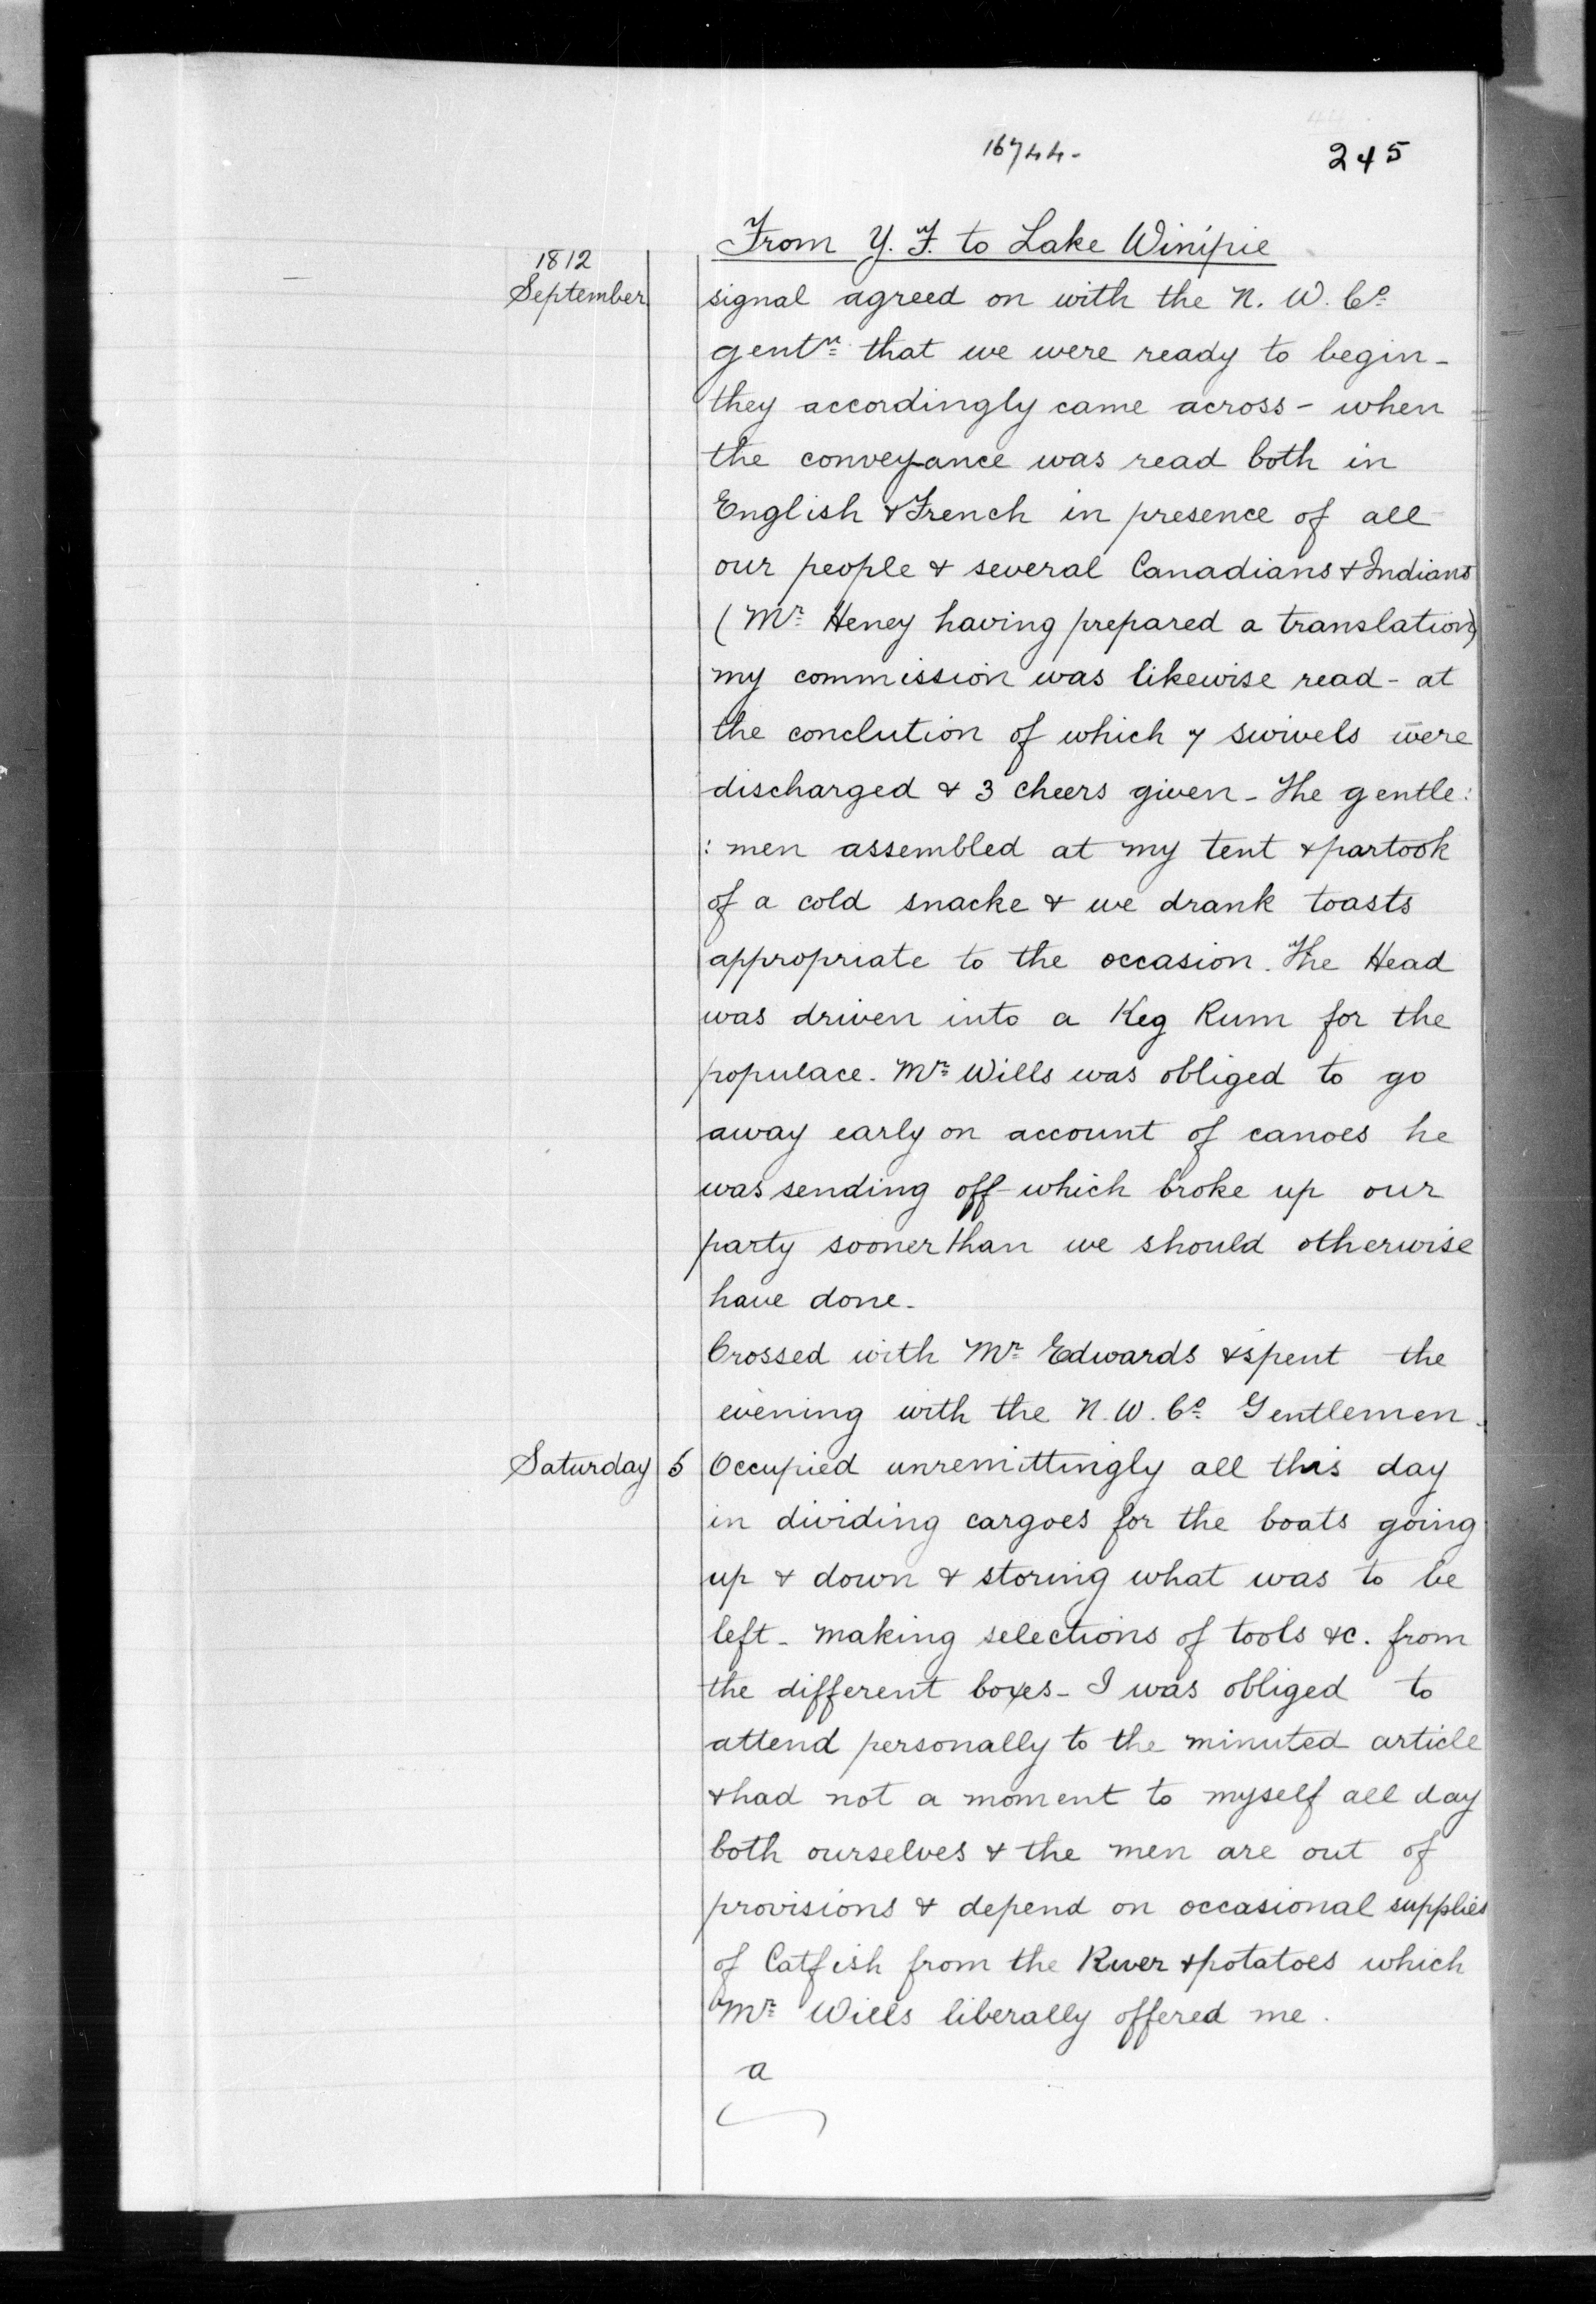 16744-
245
From Y. F. to Lake Winipie
1812
September
signal agreed on with the N. W. Co
gentn that we were ready to begin-
they accordingly came across - when
the conveyance was read both in
English & French in presence of all
our people & several Canadians & Indians
(Mr Heney having prepared a translation)
my commission was likewise read - at
the conclution of which 7 swivels were
discharged & 3 cheers given - The gentle:
: men assembled at my tent & partook
of a cold snacke & we drank toasts
appropriate to the occasion. The Head
was driven into a Keg Rum for the
populace. Mr Wills was obliged to go
away early on account of canoes he
was sending off which broke up our
party sooner than we should otherwise
have done.
Crossed with Mr Edwards & spent the
evening with the N. W. Co Gentlemen.
Saturday 5 Occupied unremittingly all this day
in dividing cargoes for the boats going
up & down & storing what was to be
left - making selections of tools &c. from
the different boxes - I was obliged to
attend personally to the minuted article
& had not a moment to myself all day
both ourselves & the men are out of
provisions & depend on occasional supplies
of Catfish from the River & potatoes which
Mr Wills liberally offered me.
a